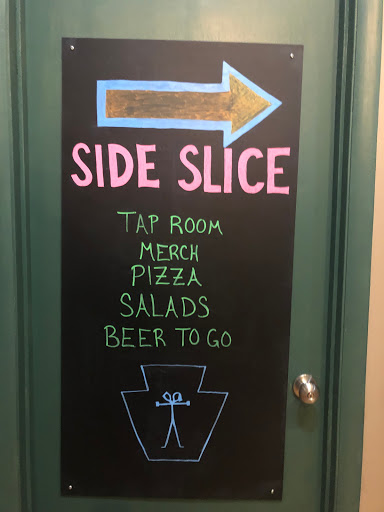 SIDE SLICE
TAP ROOM
MERCH
PIZZA
SALADS
BEER TO GO